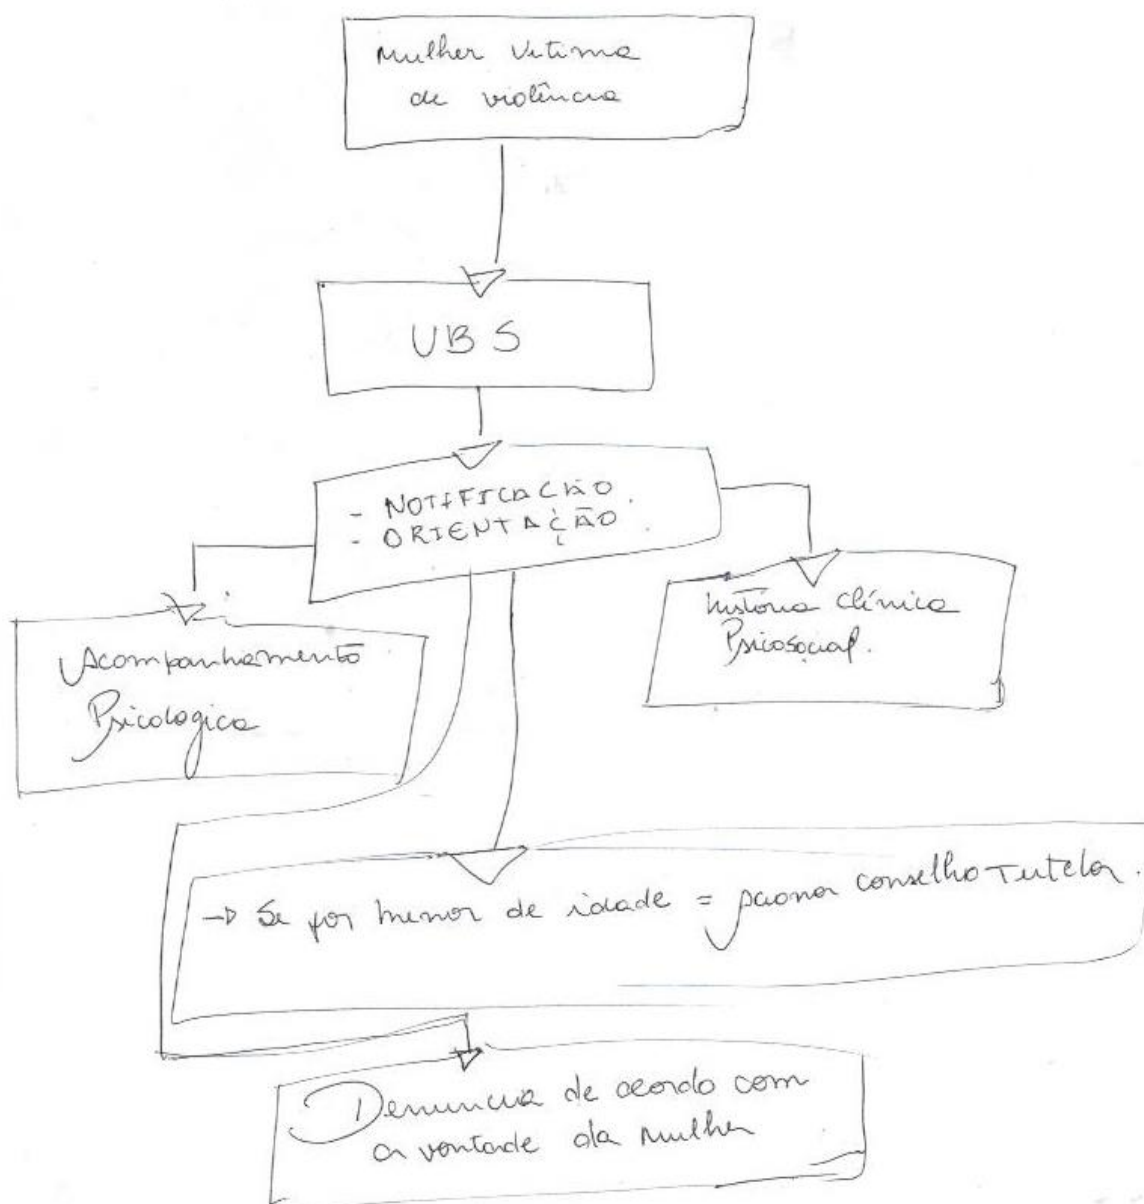 Mulher Vitima
de violência
UBS
- NOTIFICAÇÃO.
- ORIENTAÇÃO.
Acompanhamento
Psicologica
história clínica
Psicosocial.
→ Se for menor de idade = Conselho Tutelar.
Denuncia de acordo com
a vontade da mulher